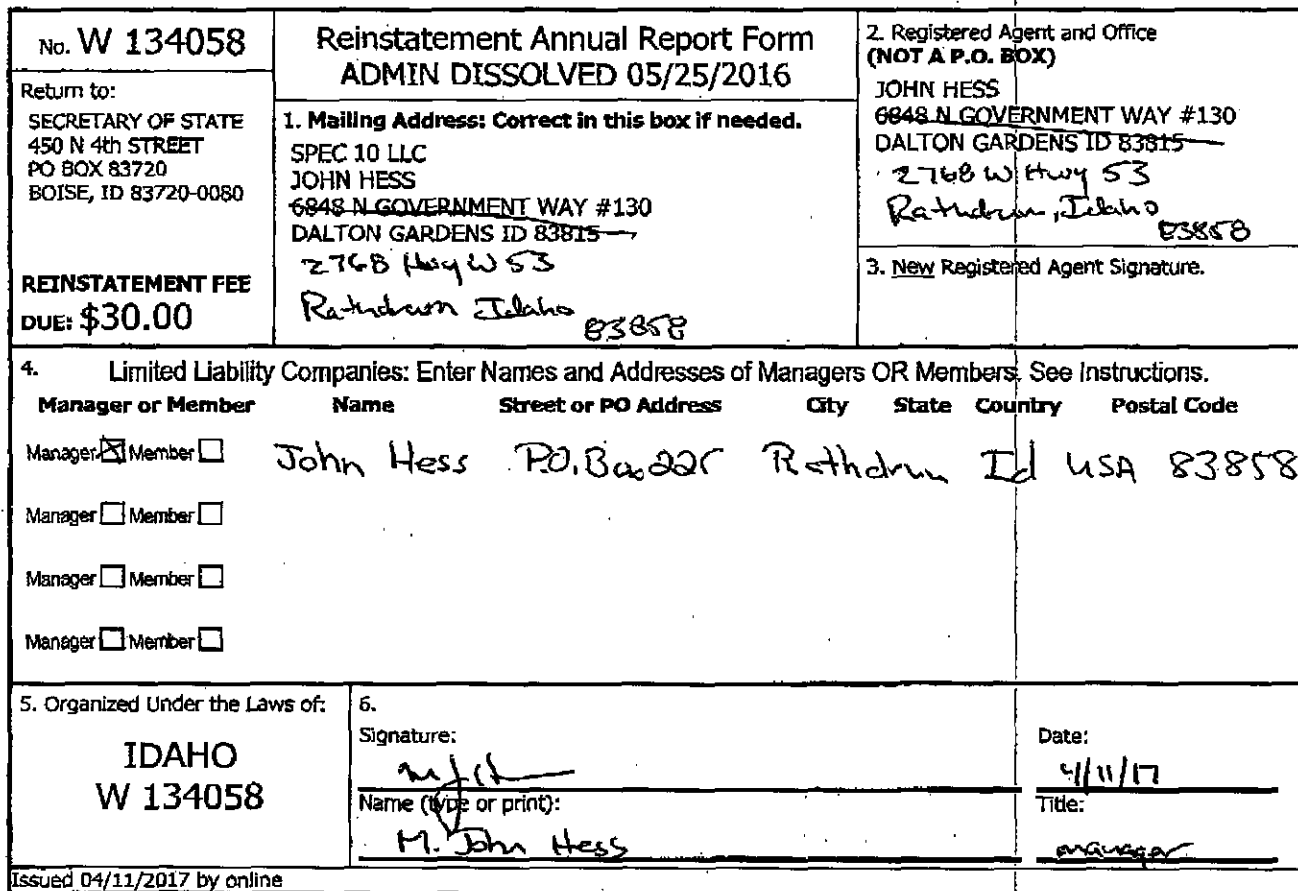 No. W 134058
Return to:
SECRETARY OF STATE
450 N 4th STREET
PO BOX 83720
BOISE, ID 83720-0080
REINSTATEMENT FEE
DUE: $30.00
Reinstatement Annual Report Form
ADMIN DISSOLVED 05/25/2016
1. Mailing Address: Correct in this box if needed.
SPEC 10 LLC
JOHN HESS
6848 N GOVERNMENT WAY #130
DALTON GARDENS ID 83815
2768 Hwy W 53
Rathdrum Idaho
83858
2. Registered Agent and Office
(NOT A P.O. BOX)
JOHN HESS
6848 N GOVERNMENT WAY #130
DALTON GARDENS ID 83815
2768 W Hwy 53
Rathdrum, Idaho
83858
3. New Registered Agent Signature.
4. Limited Liability Companies: Enter Names and Addresses of Managers OR Members. See Instructions.
Manager or Member Name Street or PO Address City State Country Postal Code
Manager Member John Hess P.O. Box 225 Rathdrum Id USA 83858
Manager Member
Manager Member
Manager Member
5. Organized Under the Laws of:
IDAHO
W 134058
6.
Signature:
Date:
4/11/17
Name (type or print):
Title:
M. John Hess
manager
Issued 04/11/2017 by online